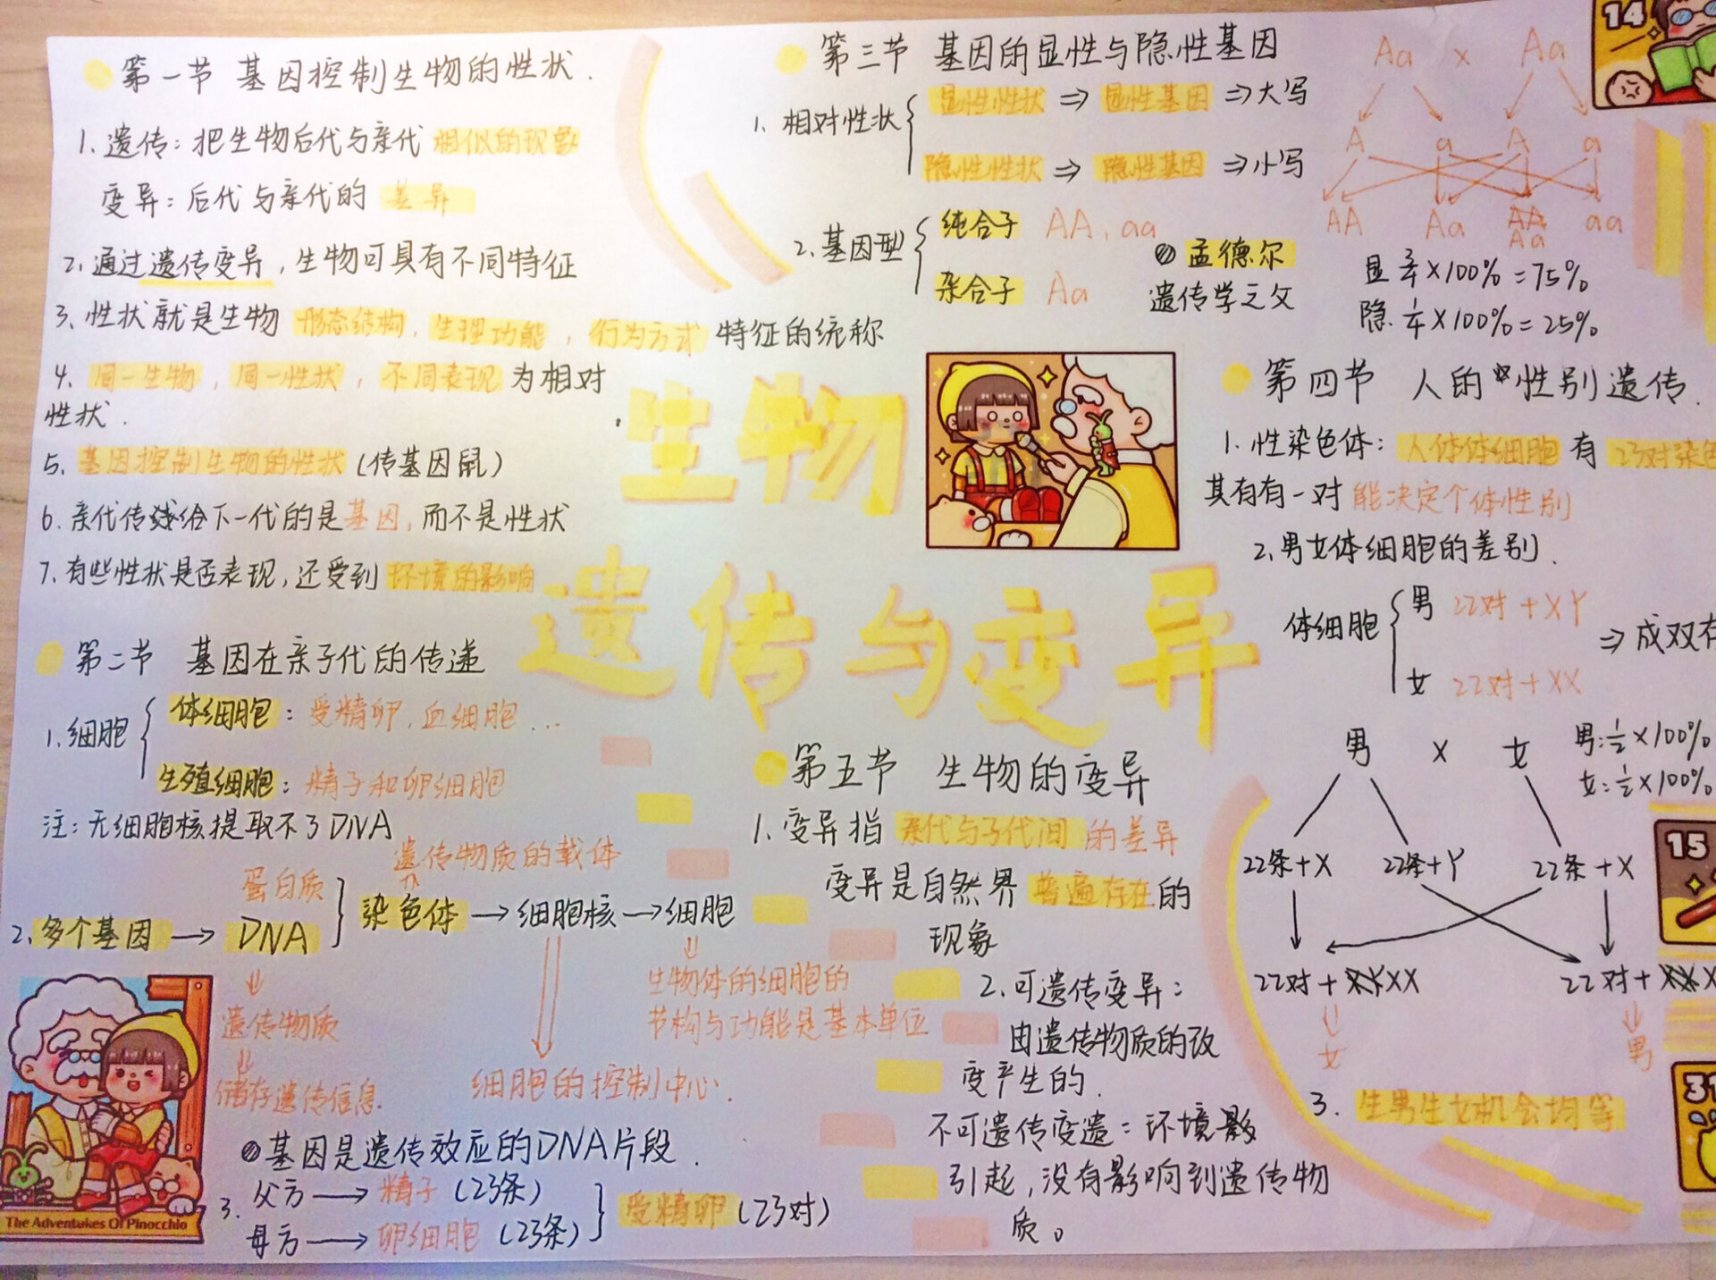 第一节 基因控制生物的性状.
1.遗传:把生物后代与亲代相似的现象
变异:后代与亲代的差异
2.通过遗传变异,生物可具有不同特征
3.性状就是生物形态结构,生理功能,行为方式特征的统称
4.同一生物,同一性状,不同表现为相对
性状.
5.基因控制生物的性状(传基因鼠)
6.亲代传给下一代的是基因,而不是性状
7.有些性状是否表现,还受到环境的影响
第二节 基因在亲子代的传递
1.细胞
体细胞:受精卵,血细胞...
生殖细胞:精子和卵细胞
注:无细胞核提取不了DNA
遗传物质的载体
蛋白质
2.多个基因→DNA
染色体→细胞核→细胞
遗传物质
储存遗传信息.
生物体的细胞的
节构与功能是基本单位
细胞的控制中心.
基因是遗传效应的DNA片段.
3.
父方→精子(23条)
母方→卵细胞(23条)
受精卵(23对)
The Adventukes Of Pinocchio
生物
遗传与变异
第三节 基因的显性与隐性基因
1.相对性状
显性性状⇒显性基因⇒大写
隐性性状⇒隐性基因⇒小写
2.基因型
纯合子 AA,aa
杂合子 Aa
孟德尔
遗传学之父
Aa × Aa
A a A a
AA Aa Aa aa
显 3/4×100%=75%
隐.1/4×100%=25%
14
第四节 人的性别遗传.
1.性染色体:人体体细胞有23对染色
其有有一对能决定个体性别
2.男女体细胞的差别.
体细胞
男 22对+XY
女 22对+XX
⇒成双存
男 × 女
男:1/2×100%
女:1/2×100%
22条+X 22条+Y 22条+X
22对+XX 22对+
女 男
3.生男生女机会均等
15
31
第五节 生物的变异
1.变异指亲代与子代间的差异
变异是自然界普遍存在的
现象
2.可遗传变异:
由遗传物质的改
变产生的.
不可遗传变遗:环境影
引起,没有影响到遗传物
质。